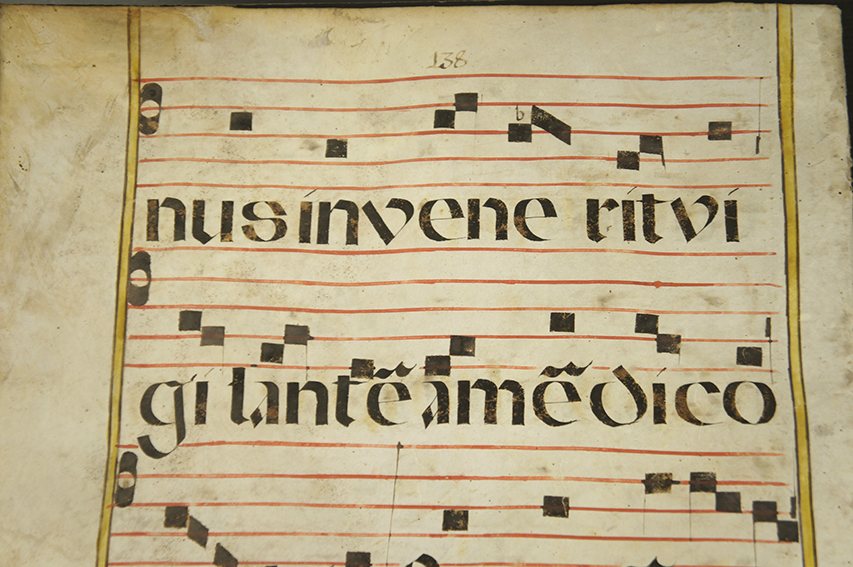 138
b
nus invene rit vi
gi lantẽ amẽ dico